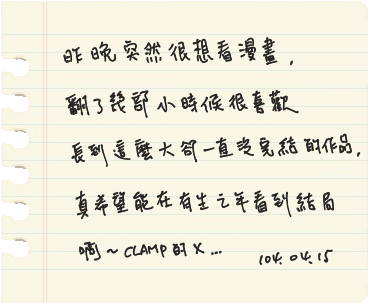 昨晚突然很想看漫畫，
翻了幾部小時候很喜歡
長到這麼大卻一直沒完結的作品，
真希望能在有生之年看到結局
啊～CLAMP的X...
104.04.15